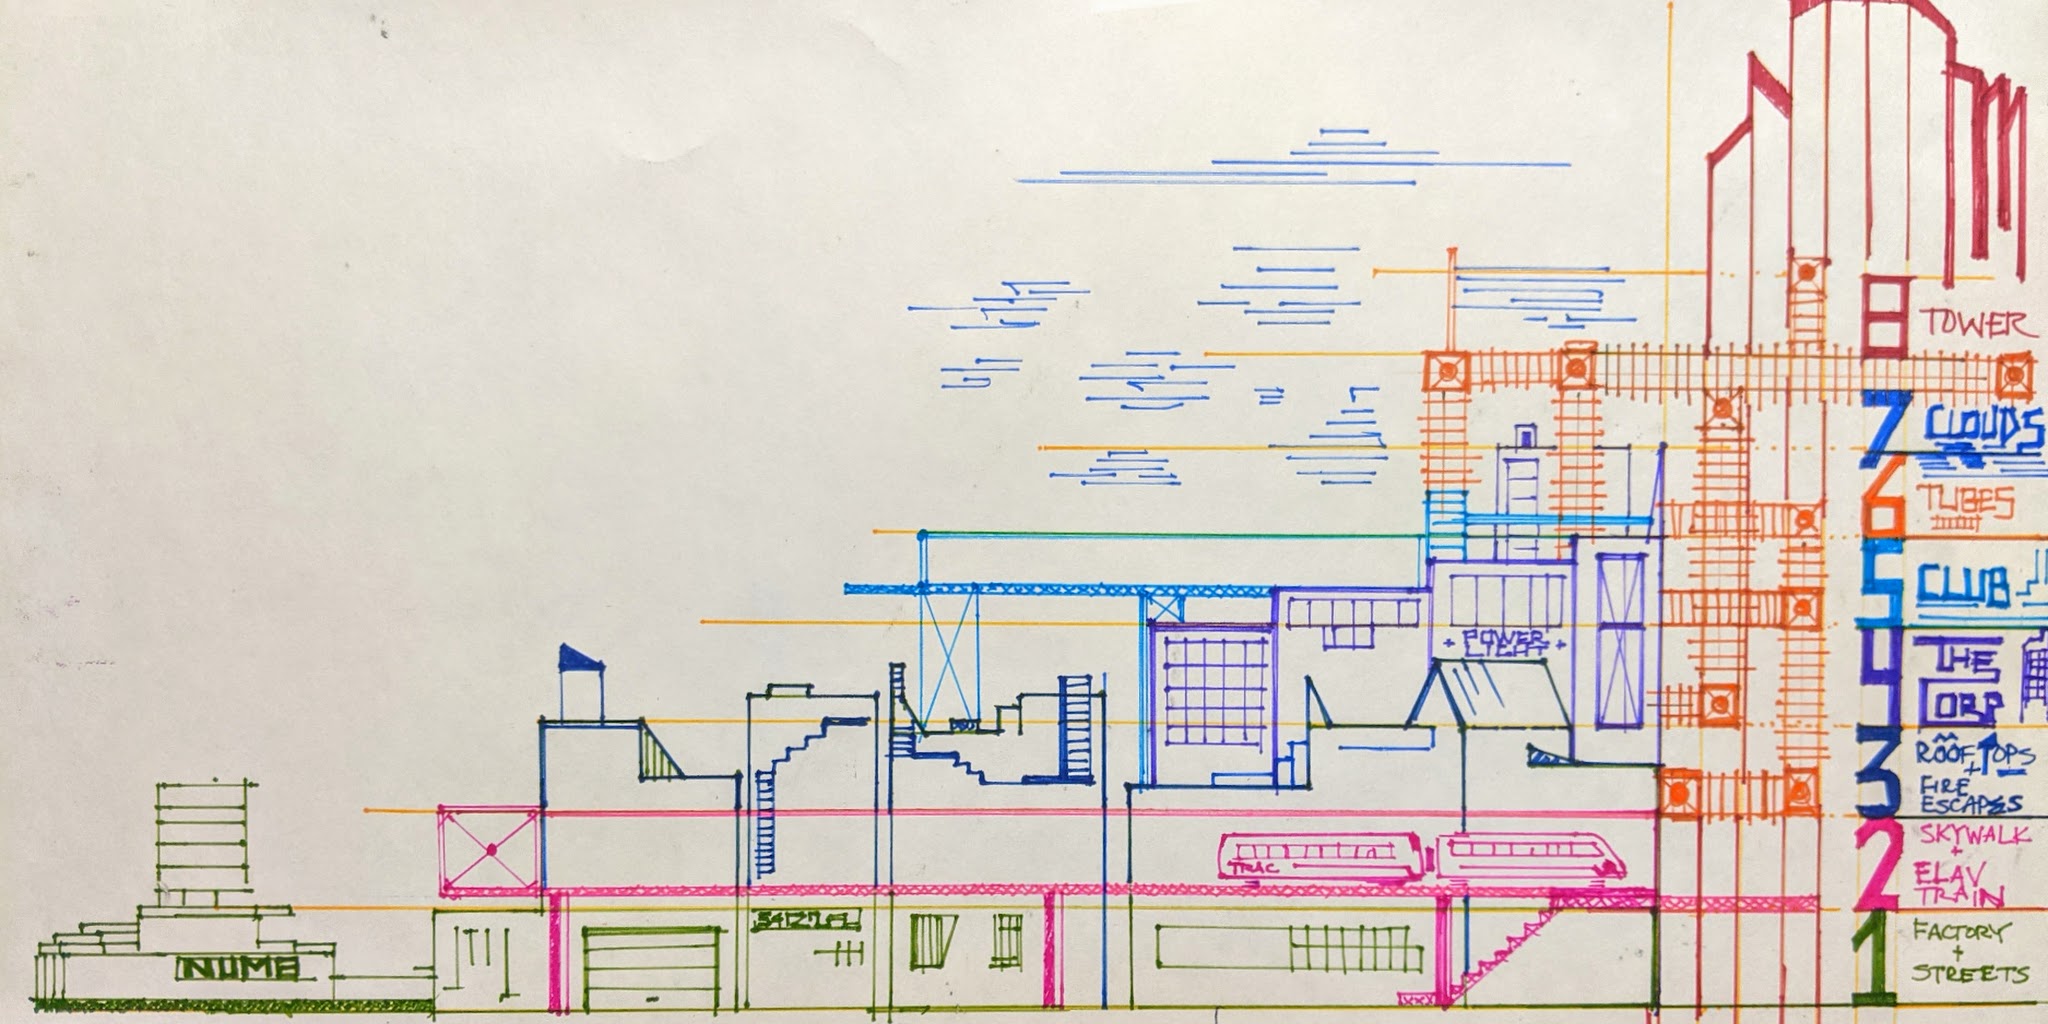 8 TOWER
7 CLOUDS
6 TUBES
5 CLUB
4 THE
CORP
3 ROOFTOPS
+
FIRE
ESCAPES
2 SKYWALK
+
ELAV
TRAIN
1 FACTORY
+
STREETS
+ POWER +
LIGHT
TRAC
NUME